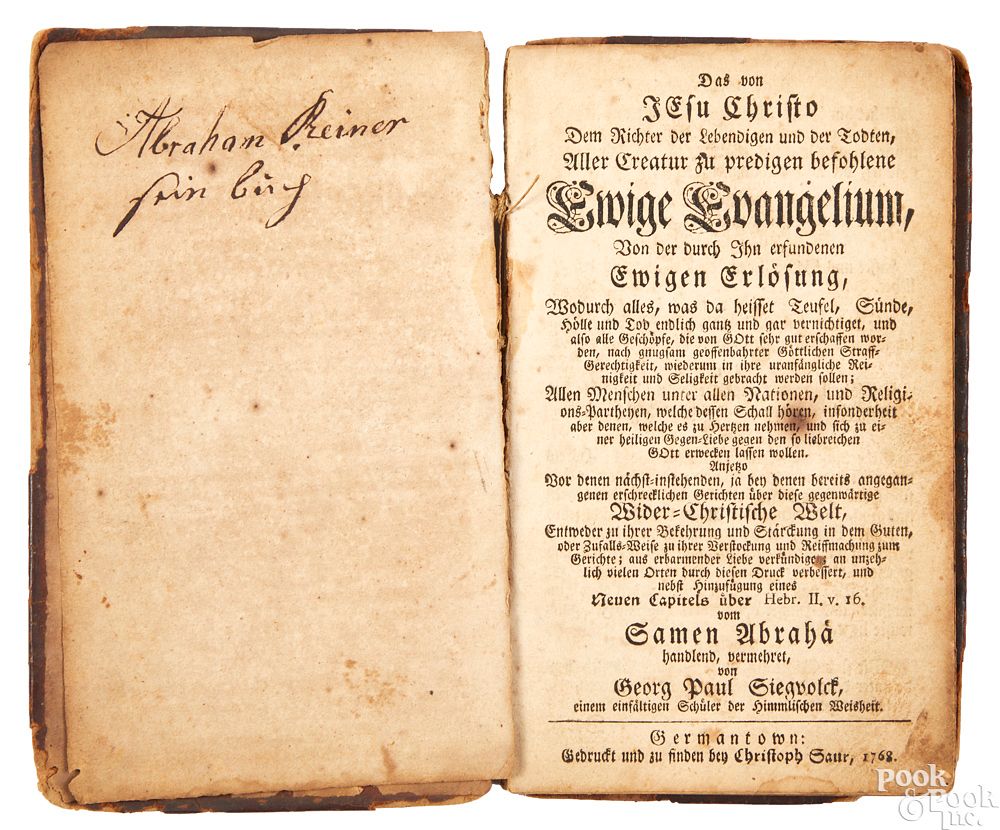 Abraham Reiner
sein buch
Das von
JEsu Christo
Dem Richter der Lebendigen und der Todten,
Aller Creatur zu predigen befohlene
Ewige Evangelium,
Von der durch Ihn erfundenen
Ewigen Erlösung,
Wodurch alles, was da heisset Teufel, Sünde,
Hölle und Tod endlich gantz und gar vernichtiget, und
also alle Geschöpfe, die von GOtt sehr gut erschaffen wor-
den, nach gnugsam geoffenbahrter Göttlichen Straff-
Gerechtigkeit, wiederum in ihre uranfängliche Rei-
nigkeit und Seligkeit gebracht werden sollen;
Allen Menschen unter allen Nationen, und Religi-
ons-Partheyen, welche dessen Schall hören, insonderheit
aber denen, welche es zu Hertzen nehmen, und sich zu ei-
ner heiligen Gegen-Liebe gegen den so liebreichen
GOtt erwecken lassen wollen.
Anjetzo
Vor denen nächst-instehenden, ja bey denen bereits angegan-
genen erschrecklichen Gerichten über diese gegenwärtige
Wider-Christische Welt,
Entweder zu ihrer Bekehrung und Stärckung in dem Guten,
oder Zufalls-Weise zu ihrer Verstockung und Reiffmachung zum
Gerichte; aus erbarmender Liebe verkündiget; an unzeh-
lich vielen Orten durch diesen Druck verbessert, und
nebst Hinzufügung eines
Neuen Capitels über Hebr. II. v. 16.
vom
Samen Abrahä
handlend, vermehret,
von
Georg Paul Siegvolck,
einem einfältigen Schüler der Himmlischen Weisheit.
Germantown:
Gedruckt und zu finden bey Christoph Saur, 1768.
POOK
& POOK
INC.